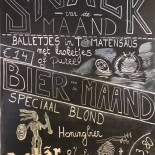 SMAAK
van de
MAAND
BALLETJES in TOMATENSAUS
met frietjes
of Puree!
€14
BIER van de MAAND
SPECIAAL BLOND
Honingbier